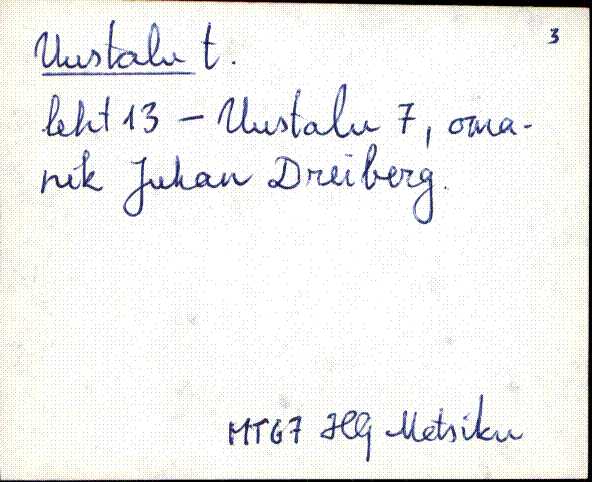 3
Uustalu t.
leht 13 – Uustalu 7, oma-
nik Juhan Dreiberg.
MT67 HG Metsiku